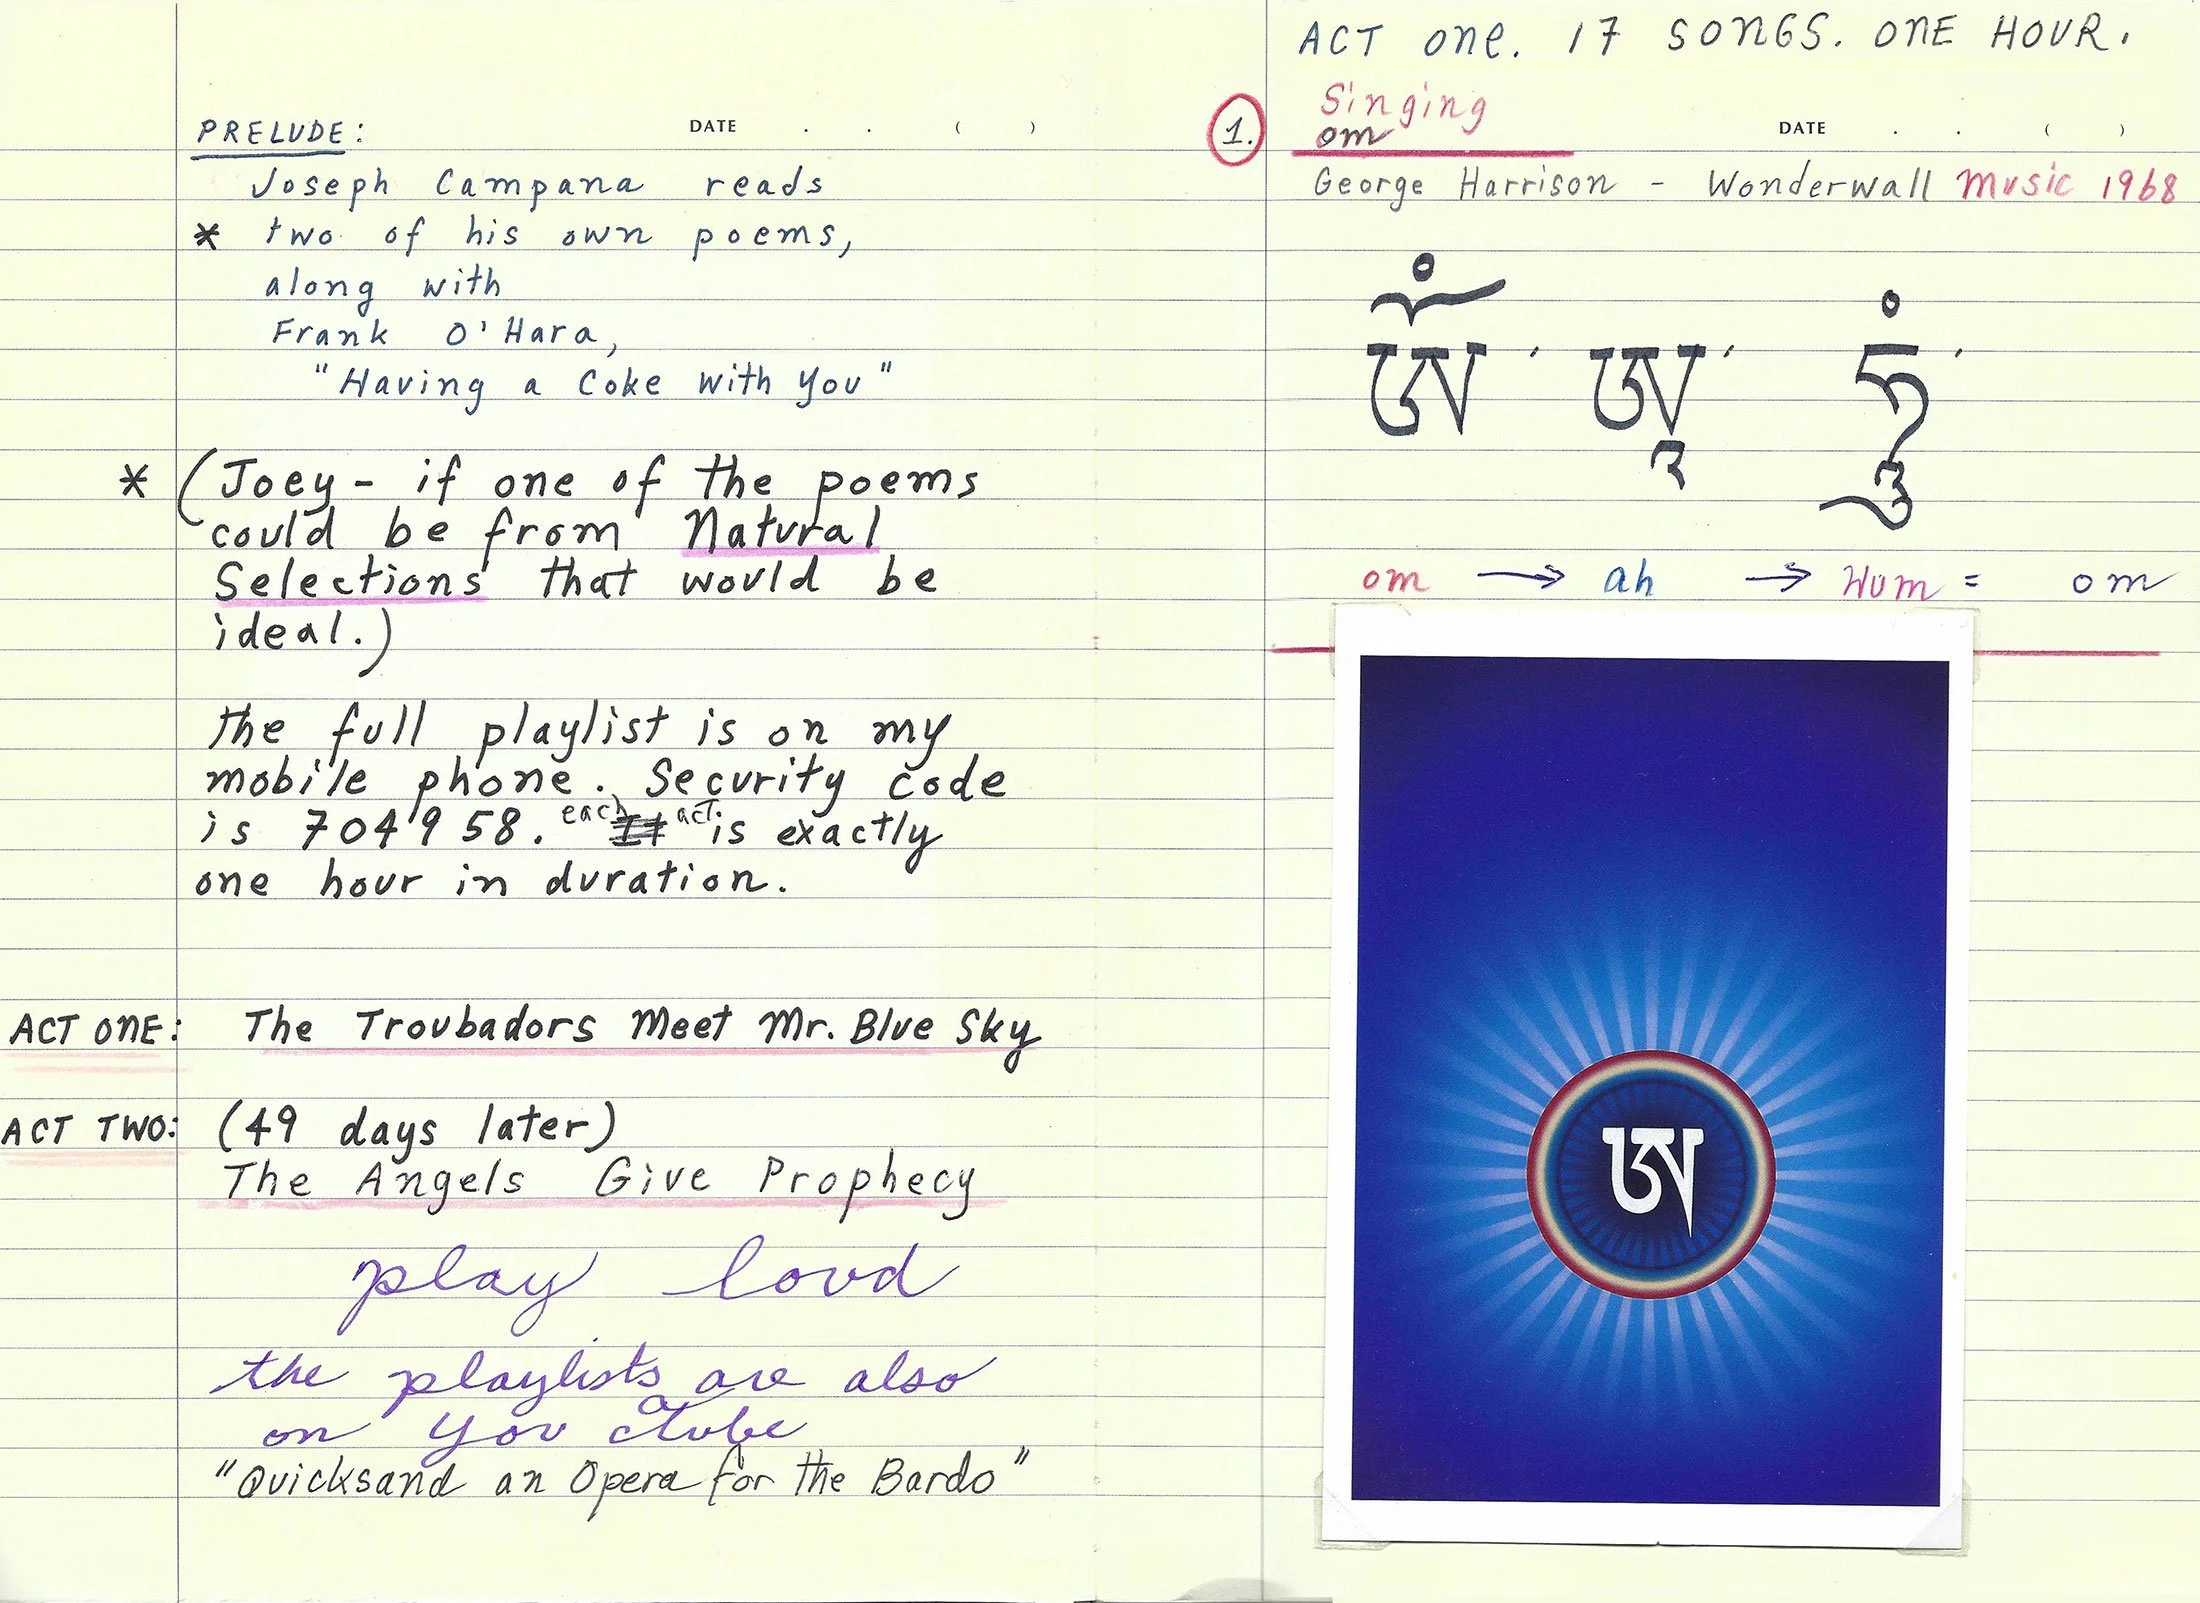 PRELUDE:
DATE . . ( )
Joseph Campana reads
* two of his own poems,
along with
Frank O'Hara,
"Having a Coke with You"
* (Joey - if one of the poems
could be from Natural
Selections that would be
ideal.)
the full playlist is on my
mobile phone. Security code
is 704958. each act is exactly
one hour in duration.
ACT ONE: The Troubadors Meet Mr. Blue Sky
ACT TWO: (49 days later)
The Angels Give Prophecy
play loud
the playlists are also
on You Tube
"Quicksand an Opera for the Bardo"
ACT One. 17 SONGS. ONE HOUR.
1. Singing
om
DATE . . ( )
George Harrison - Wonderwall Music 1968
ༀ་ཨཱ་ཧཱུྃ་
om → ah → Hum = om
ཨ